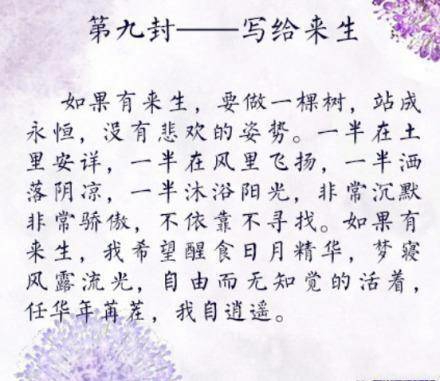 第九封——写给来生
如果有来生，要做一棵树，站成
永恒，没有悲欢的姿势。一半在土
里安详，一半在风里飞扬，一半洒
落阴凉，一半沐浴阳光，非常沉默
非常骄傲，不依靠不寻找。如果有
来生，我希望醒食日月精华，梦寝
风露流光，自由而无知觉的活着，
任华年苒茬，我自逍遥。